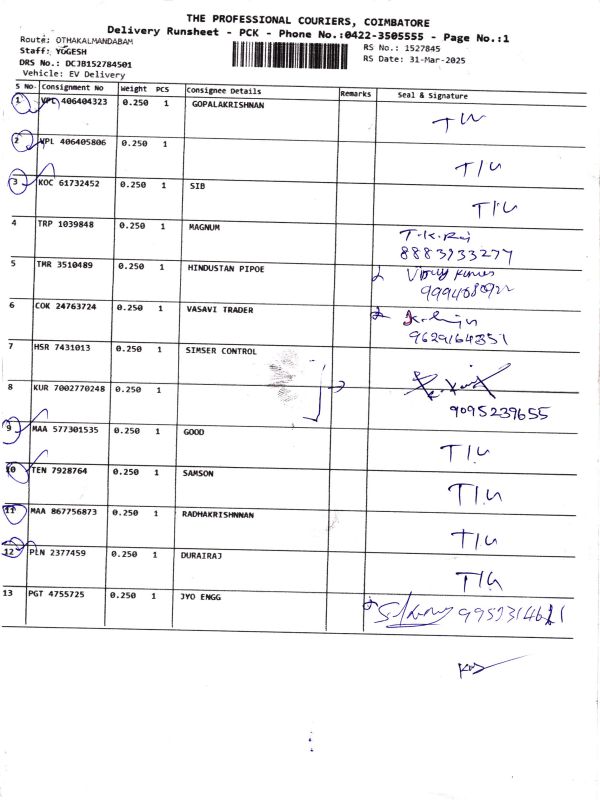 THE PROFESSIONAL COURIERS, COIMBATORE
Delivery Runsheet - PCK - Phone No.:0422-3505555 - Page No.:1
Route: OTHAKALMANDABAM
RS No.: 1527845
Staff: YOGESH
RS Date: 31-Mar-2025
DRS No.: DCJB152784501
Vehicle: EV Delivery
S No. Consignment No Weight PCS Consignee Details Remarks Seal & Signature
1 VPL 406404323 0.250 1 GOPALAKRISHNAN
2 VPL 406405806 0.250 1 T/L
3 KOC 61732452 0.250 1 SIB T/L
4 TRP 1039848 0.250 1 MAGNUM
8883933277
5 TMR 3510489 0.250 1 HINDUSTAN PIPOE
6 COK 24763724 0.250 1 VASAVI TRADER
9629164351
7 HSR 7431013 0.250 1 SIMSER CONTROL
8 KUR 7002770248 0.250 1
9095239655
9 MAA 577301535 0.250 1 GOOD T/L
10 TEN 7928764 0.250 1 SAMSON T/L
11 MAA 867756873 0.250 1 RADHAKRISHNNAN T/L
12 PLN 2377459 0.250 1 DURAIRAJ T/L
13 PGT 4755725 0.250 1 JYO ENGG